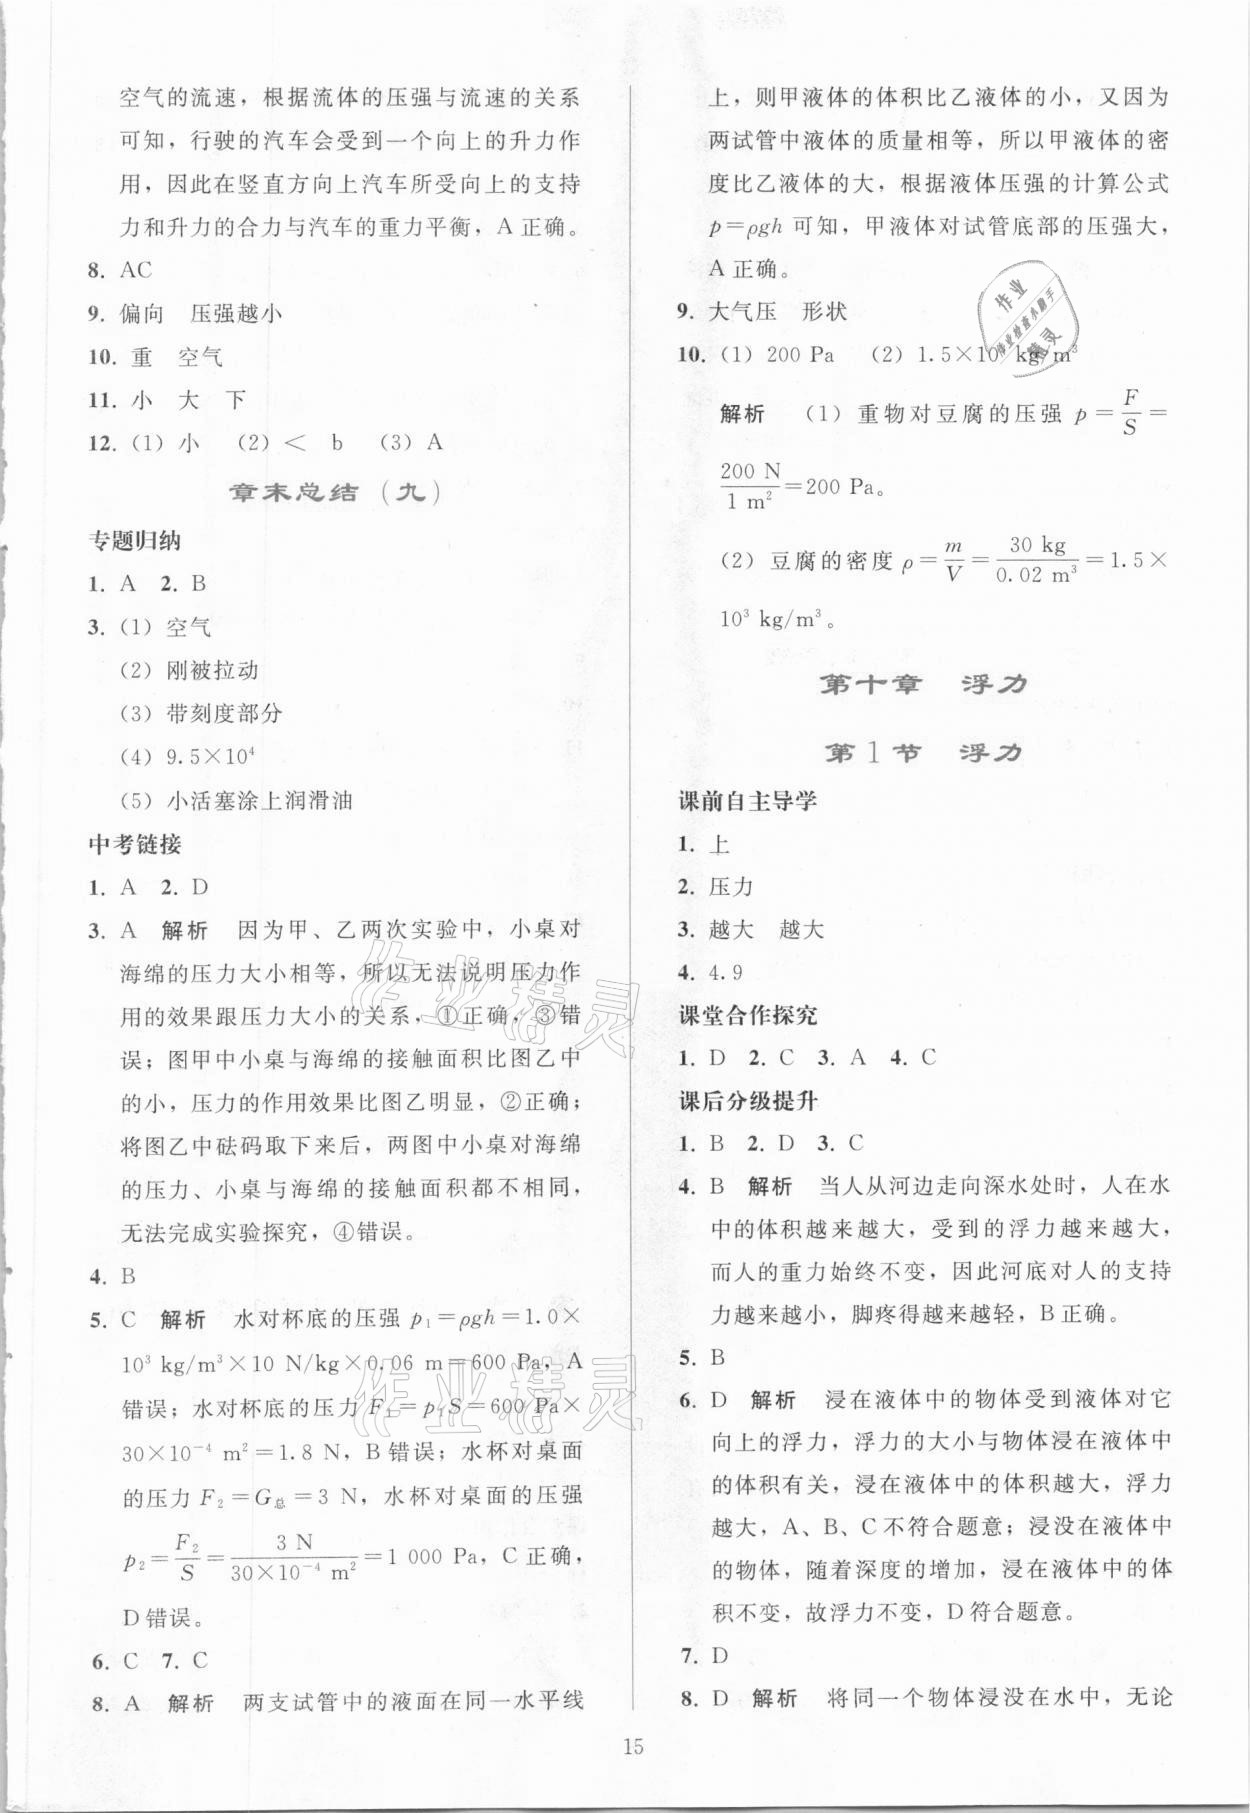 空气的流速，根据流体的压强与流速的关系
可知，行驶的汽车会受到一个向上的升力作
用，因此在竖直方向上汽车所受向上的支持
力和升力的合力与汽车的重力平衡，A 正确。
8. AC
9. 偏向　压强越小
10. 重　空气
11. 小　大　下
12. (1) 小　(2) <　b　(3) A
章末总结（九）
专题归纳
1. A　2. B
3. (1) 空气
(2) 刚被拉动
(3) 带刻度部分
(4) 9.5×10⁴
(5) 小活塞涂上润滑油
中考链接
1. A　2. D
3. A　解析　因为甲、乙两次实验中，小桌对
海绵的压力大小相等，所以无法说明压力作
用的效果跟压力大小的关系，①正确，③错
误；图甲中小桌与海绵的接触面积比图乙中
的小，压力的作用效果比图乙明显，②正确；
将图乙中砝码取下来后，两图中小桌对海绵
的压力、小桌与海绵的接触面积都不相同，
无法完成实验探究，④错误。
4. B
5. C　解析　水对杯底的压强 p₁=ρgh=1.0×
10³ kg/m³×10 N/kg×0.06 m=600 Pa，A
错误；水对杯底的压力 F₁=p₁S=600 Pa×
30×10⁻⁴ m²=1.8 N，B 错误；水杯对桌面
的压力 F₂=G总=3 N，水杯对桌面的压强
p₂=F₂/S=3 N/(30×10⁻⁴ m²)=1 000 Pa，C 正确，
D 错误。
6. C　7. C
8. A　解析　两支试管中的液面在同一水平线
上，则甲液体的体积比乙液体的小，又因为
两试管中液体的质量相等，所以甲液体的密
度比乙液体的大，根据液体压强的计算公式
p=ρgh 可知，甲液体对试管底部的压强大，
A 正确。
9. 大气压　形状
10. (1) 200 Pa　(2) 1.5×10³ kg/m³
解析　(1) 重物对豆腐的压强 p=F/S=
200 N/1 m²=200 Pa。
(2) 豆腐的密度 ρ=m/V=30 kg/0.02 m³=1.5×
10³ kg/m³。
第十章　浮力
第1节　浮力
课前自主导学
1. 上
2. 压力
3. 越大　越大
4. 4.9
课堂合作探究
1. D　2. C　3. A　4. C
课后分级提升
1. B　2. D　3. C
4. B　解析　当人从河边走向深水处时，人在水
中的体积越来越大，受到的浮力越来越大，
而人的重力始终不变，因此河底对人的支持
力越来越小，脚疼得越来越轻，B 正确。
5. B
6. D　解析　浸在液体中的物体受到液体对它
向上的浮力，浮力的大小与物体浸在液体中
的体积有关，浸在液体中的体积越大，浮力
越大，A、B、C 不符合题意；浸没在液体中
的物体，随着深度的增加，浸在液体中的体
积不变，故浮力不变，D 符合题意。
7. D
8. D　解析　将同一个物体浸没在水中，无论
15
作业
作业检查小助手
精灵
作业精灵
作业精灵